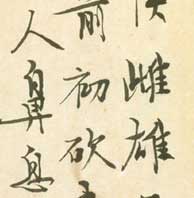 雌雄
前初砍
人鼻息